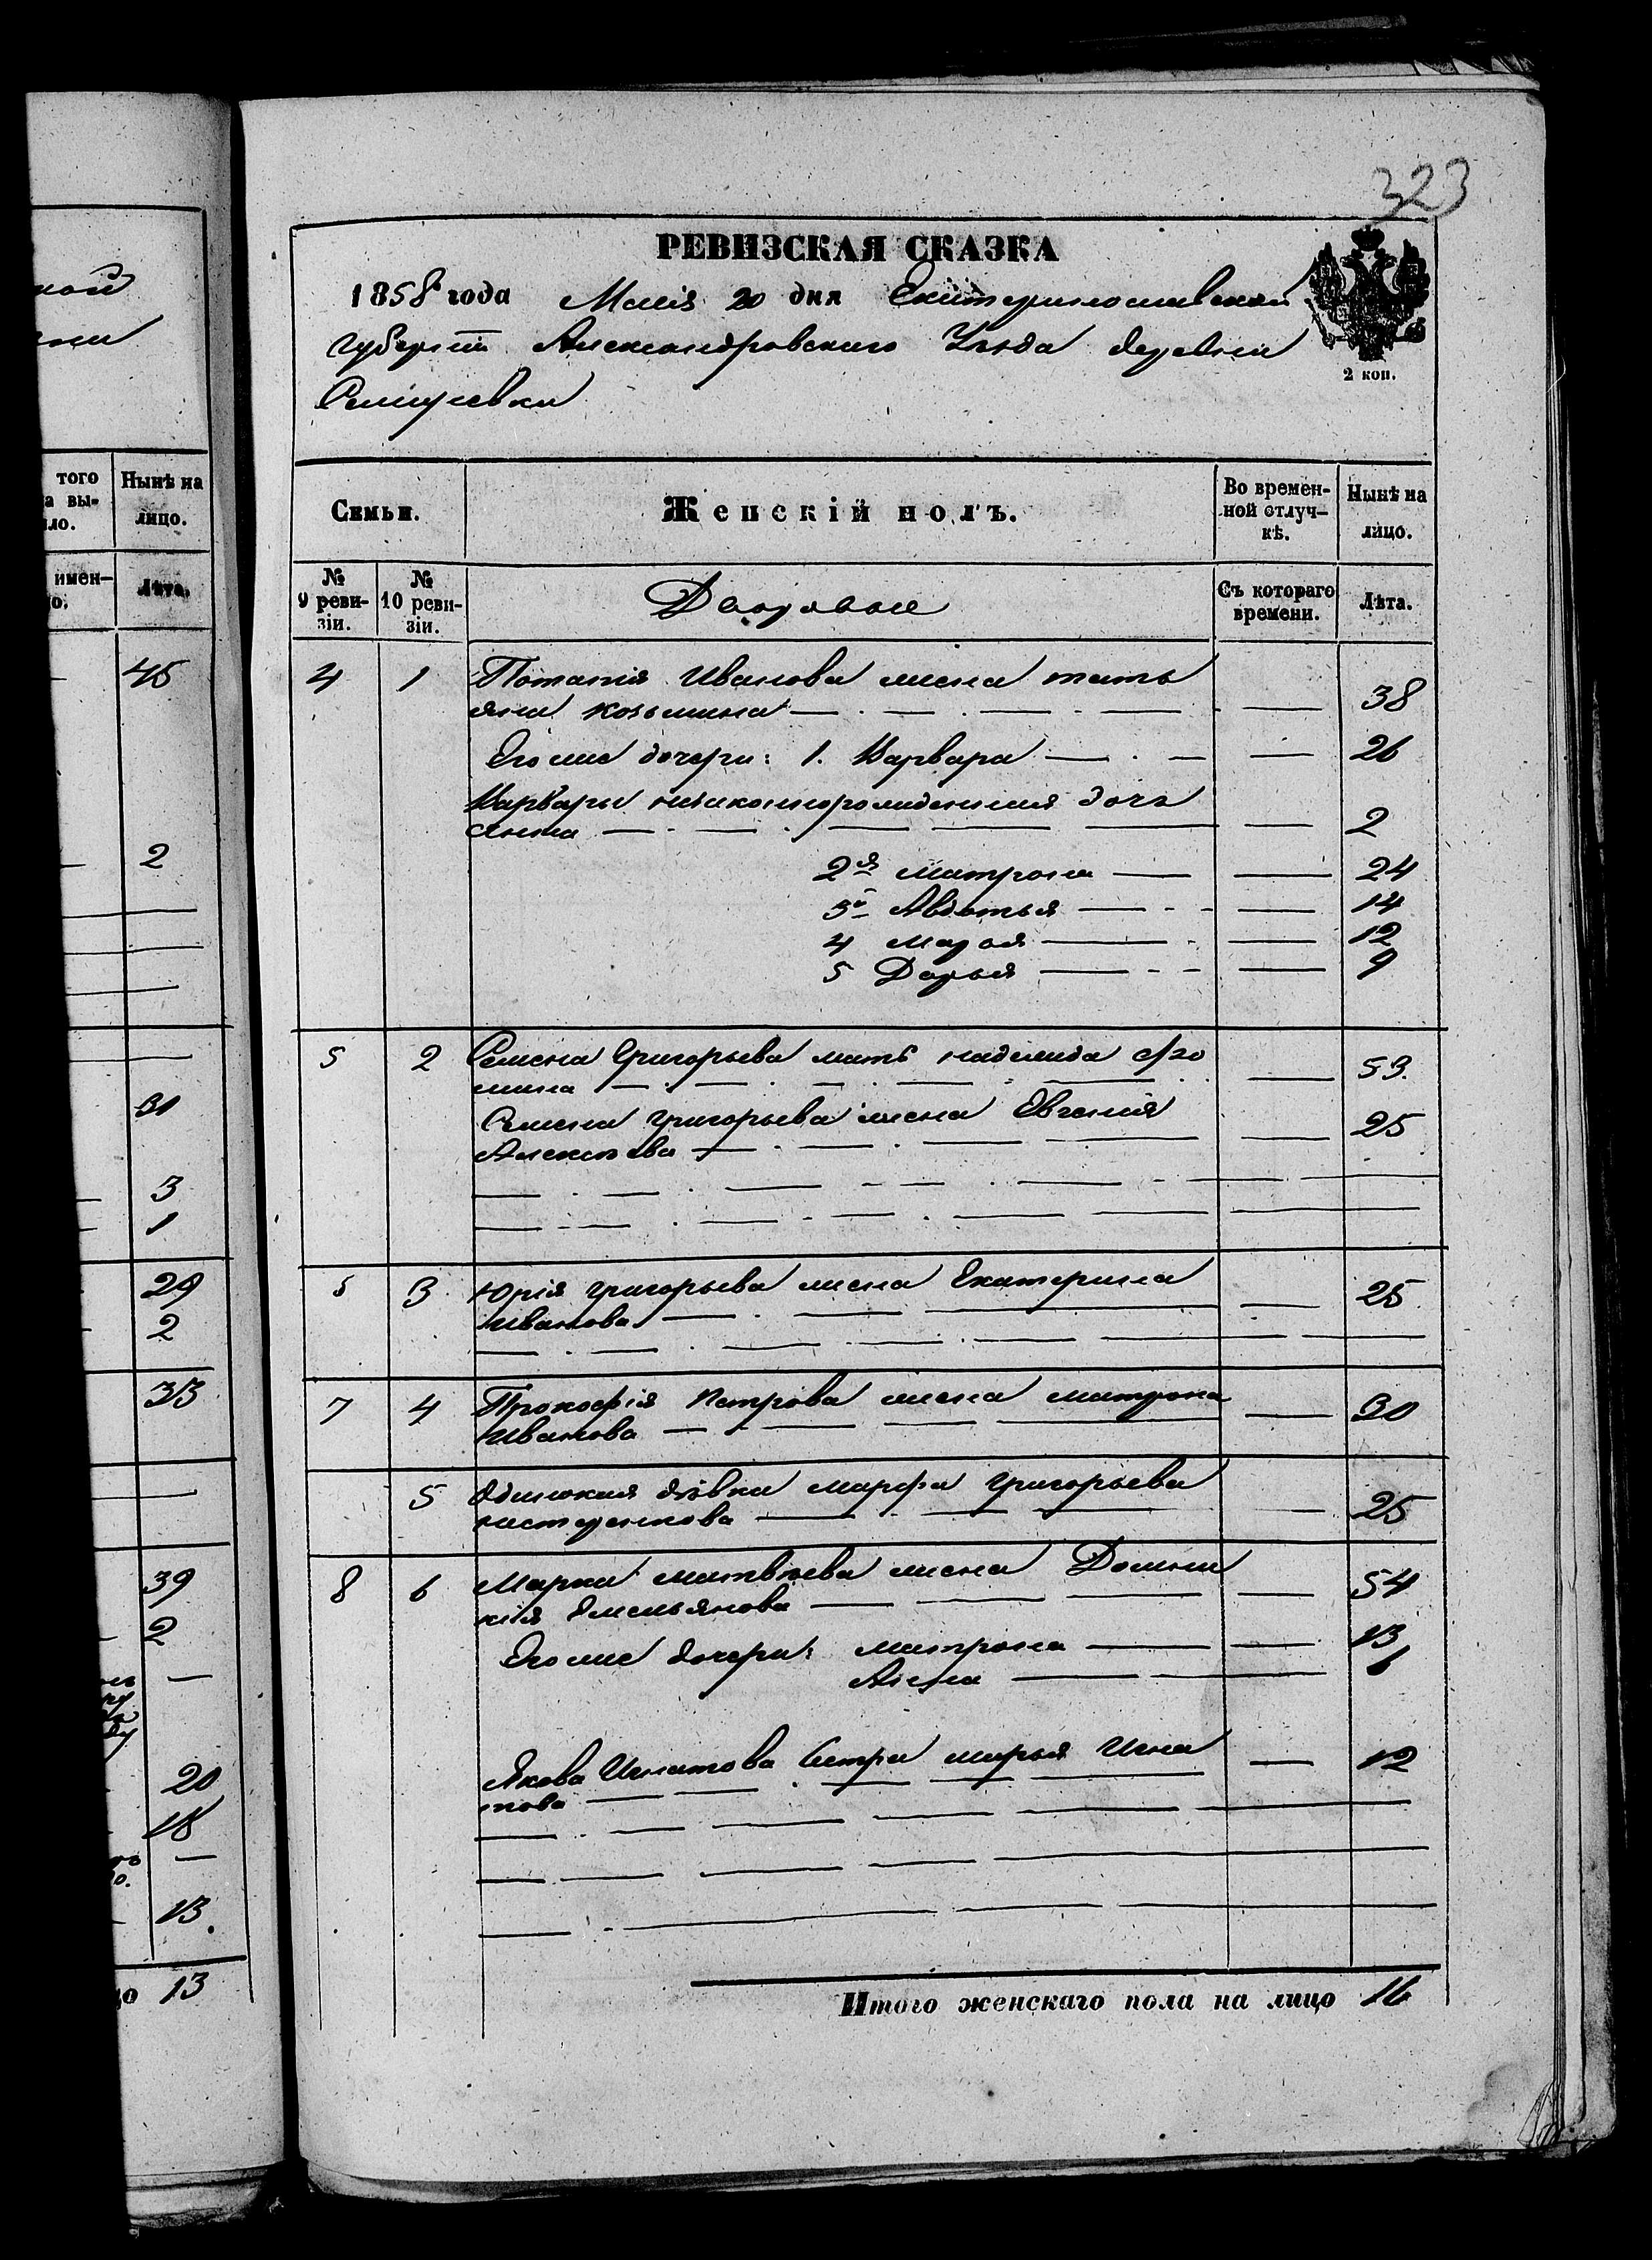 323
РЕВИЗСКАЯ СКАЗКА
1858 года Маія 20 дня Екатеринославской
Губерніи Александровскаго Уѣзда деревни
2 коп.
того
а вы-
ло.
Нынѣ на
лицо.
Семьи.
Женскій полъ.
Во времен-
ной отлуч-
кѣ.
Нынѣ на
лицо.
имен-
о.
Лѣта.
№
9 реви-
зіи.
№
10 реви-
зіи.
Дворовые
Съ котораго
времени.
Лѣта.
45
4 1 Потапія Иванова жена тать
яна козьмина 38
Его же дочери: 1. Варвара 26
Варвары незаконнорожденная дочь
Анна 2
2
2я Матрона 24
3я Авдотья 14
4 Марья 12
5 Дарья 9
5 2 Семена Григорьева мать надежда
мина 53.
31
Семена Григорьева жена Евгенія
Алексѣева 25
3
1
29
5 3 Юрія григорьева жена Екатерина
Иванова 25
2
33
7 4 Прокофія Петрова жена матрона
Иванова 30
5 Одинокая дѣвка марфа григорьева
нестеренкова 25
39
8 6 Марка матвѣева жена Домни
кія Емельянова 54
2
Его же дочери: матрона 13
Анна 6
20
Якова Игнатова сестра марья Игна
това 12
18
13.
13
Итого женскаго пола на лицо 16